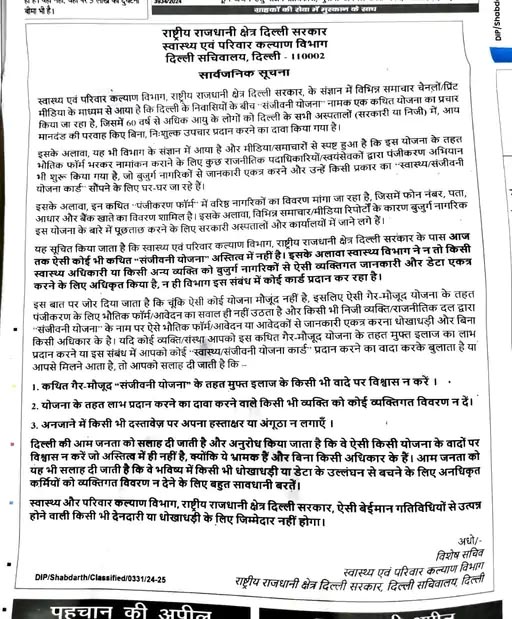 ग्राहकों की सेवा में मुस्कान के साथ
राष्ट्रीय राजधानी क्षेत्र दिल्ली सरकार
स्वास्थ्य एवं परिवार कल्याण विभाग
दिल्ली सचिवालय, दिल्ली - 110002
सार्वजनिक सूचना
स्वास्थ्य एवं परिवार कल्याण विभाग, राष्ट्रीय राजधानी क्षेत्र दिल्ली सरकार, के संज्ञान में विभिन्न समाचार चैनलों/प्रिंट
मीडिया के माध्यम से आया है कि दिल्ली के निवासियों के बीच "संजीवनी योजना" नामक एक कथित योजना का प्रचार
किया जा रहा है, जिसमें 60 वर्ष से अधिक आयु के लोगों को दिल्ली के सभी अस्पतालों (सरकारी या निजी) में, आय
मानदंड की परवाह किए बिना, निःशुल्क उपचार प्रदान करने का दावा किया गया है।
इसके अलावा, यह भी विभाग के संज्ञान में आया है और मीडिया/समाचारों से स्पष्ट हुआ है कि इस योजना के तहत
भौतिक फॉर्म भरकर नामांकन कराने के लिए कुछ राजनीतिक पदाधिकारियों/स्वयंसेवकों द्वारा पंजीकरण अभियान
भी शुरू किया गया है, जो बुजुर्ग नागरिकों से जानकारी एकत्र करने और उन्हें किसी प्रकार का "स्वास्थ्य/संजीवनी
योजना कार्ड" सौंपने के लिए घर-घर जा रहे हैं।
इसके अलावा, इन कथित "पंजीकरण फॉर्म" में वरिष्ठ नागरिकों का विवरण मांगा जा रहा है, जिसमें फोन नंबर, पता,
आधार और बैंक खाते का विवरण शामिल है। इसके अलावा, विभिन्न समाचार/मीडिया रिपोर्टों के कारण बुजुर्ग नागरिक
इस योजना के बारे में पूछताछ करने के लिए सरकारी अस्पतालों और कार्यालयों में जाने लगे हैं।
यह सूचित किया जाता है कि स्वास्थ्य एवं परिवार कल्याण विभाग, राष्ट्रीय राजधानी क्षेत्र दिल्ली सरकार के पास आज
तक ऐसी कोई भी कथित "संजीवनी योजना" अस्तित्व में नहीं है। इसके अलावा स्वास्थ्य विभाग ने न तो किसी
स्वास्थ्य अधिकारी या किसी अन्य व्यक्ति को बुजुर्ग नागरिकों से ऐसी व्यक्तिगत जानकारी और डेटा एकत्र
करने के लिए अधिकृत किया है, न ही विभाग इस संबंध में कोई कार्ड प्रदान कर रहा है।
इस बात पर जोर दिया जाता है कि चूंकि ऐसी कोई योजना मौजूद नहीं है, इसलिए ऐसी गैर-मौजूद योजना के तहत
पंजीकरण के लिए भौतिक फॉर्म/आवेदन का सवाल ही नहीं उठता है और किसी भी निजी व्यक्ति/राजनीतिक दल द्वारा
"संजीवनी योजना" के नाम पर ऐसे भौतिक फॉर्म/आवेदन या आवेदकों से जानकारी एकत्र करना धोखाधड़ी और बिना
किसी अधिकार के है। यदि कोई व्यक्ति/संस्था आपको इस कथित गैर-मौजूद योजना के तहत मुफ्त इलाज का लाभ
प्रदान करने या इस संबंध में आपको कोई "स्वास्थ्य/संजीवनी योजना कार्ड" प्रदान करने का वादा करके बुलाता है या
आपसे मिलने आता है, तो आपको सलाह दी जाती है कि –
1. कथित गैर-मौजूद "संजीवनी योजना" के तहत मुफ्त इलाज के किसी भी वादे पर विश्वास न करें ।
2. योजना के तहत लाभ प्रदान करने का दावा करने वाले किसी भी व्यक्ति को कोई व्यक्तिगत विवरण न दें।
3. अनजाने में किसी भी दस्तावेज़ पर अपना हस्ताक्षर या अंगूठा न लगाएँ ।
दिल्ली की आम जनता को सलाह दी जाती है और अनुरोध किया जाता है कि वे ऐसी किसी योजना के वादों पर
विश्वास न करें जो अस्तित्व में ही नहीं है, क्योंकि वे भ्रामक हैं और बिना किसी अधिकार के हैं। आम जनता को
यह भी सलाह दी जाती है कि वे भविष्य में किसी भी धोखाधड़ी या डेटा के उल्लंघन से बचने के लिए अनधिकृत
कर्मियों को व्यक्तिगत विवरण न देने के लिए बहुत सावधानी बरतें।
स्वास्थ्य और परिवार कल्याण विभाग, राष्ट्रीय राजधानी क्षेत्र दिल्ली सरकार, ऐसी बेईमान गतिविधियों से उत्पन्न
होने वाली किसी भी देनदारी या धोखाधड़ी के लिए जिम्मेदार नहीं होगा।
अधो/-
विशेष सचिव
स्वास्थ्य एवं परिवार कल्याण विभाग
राष्ट्रीय राजधानी क्षेत्र दिल्ली सरकार, दिल्ली सचिवालय, दिल्ली
DIP/Shabdarth/Classified/0331/24-25
पहचान की अपील